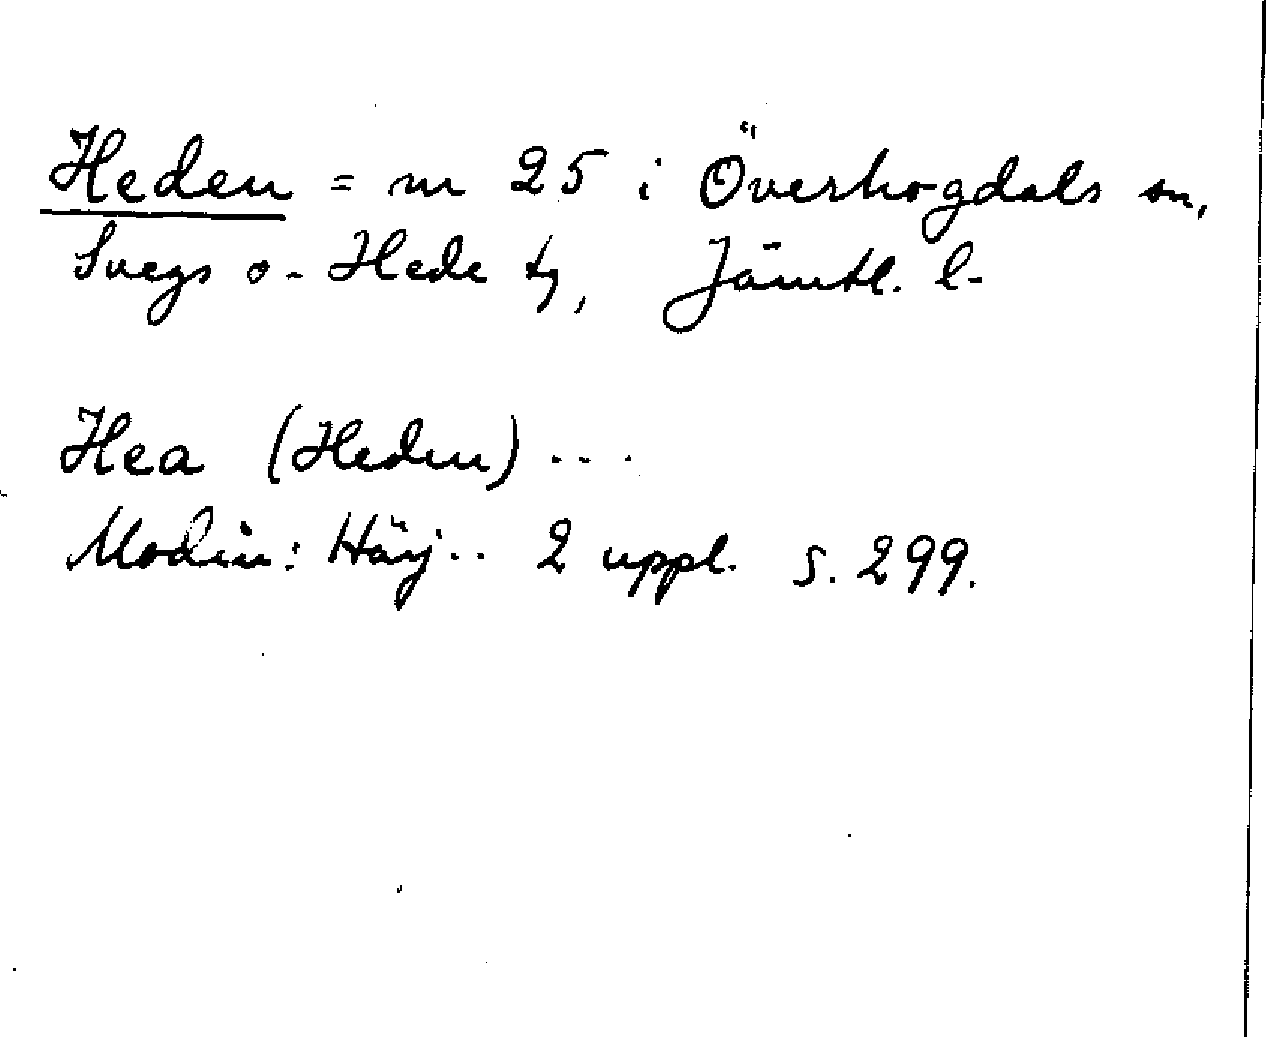 Heden = nr 25 i Överhogdals sn,
Svegs o. Hede tg, Jämtl. l.
Hea (Heden) ...
Modin: Härj.. 2 uppl. s. 299.